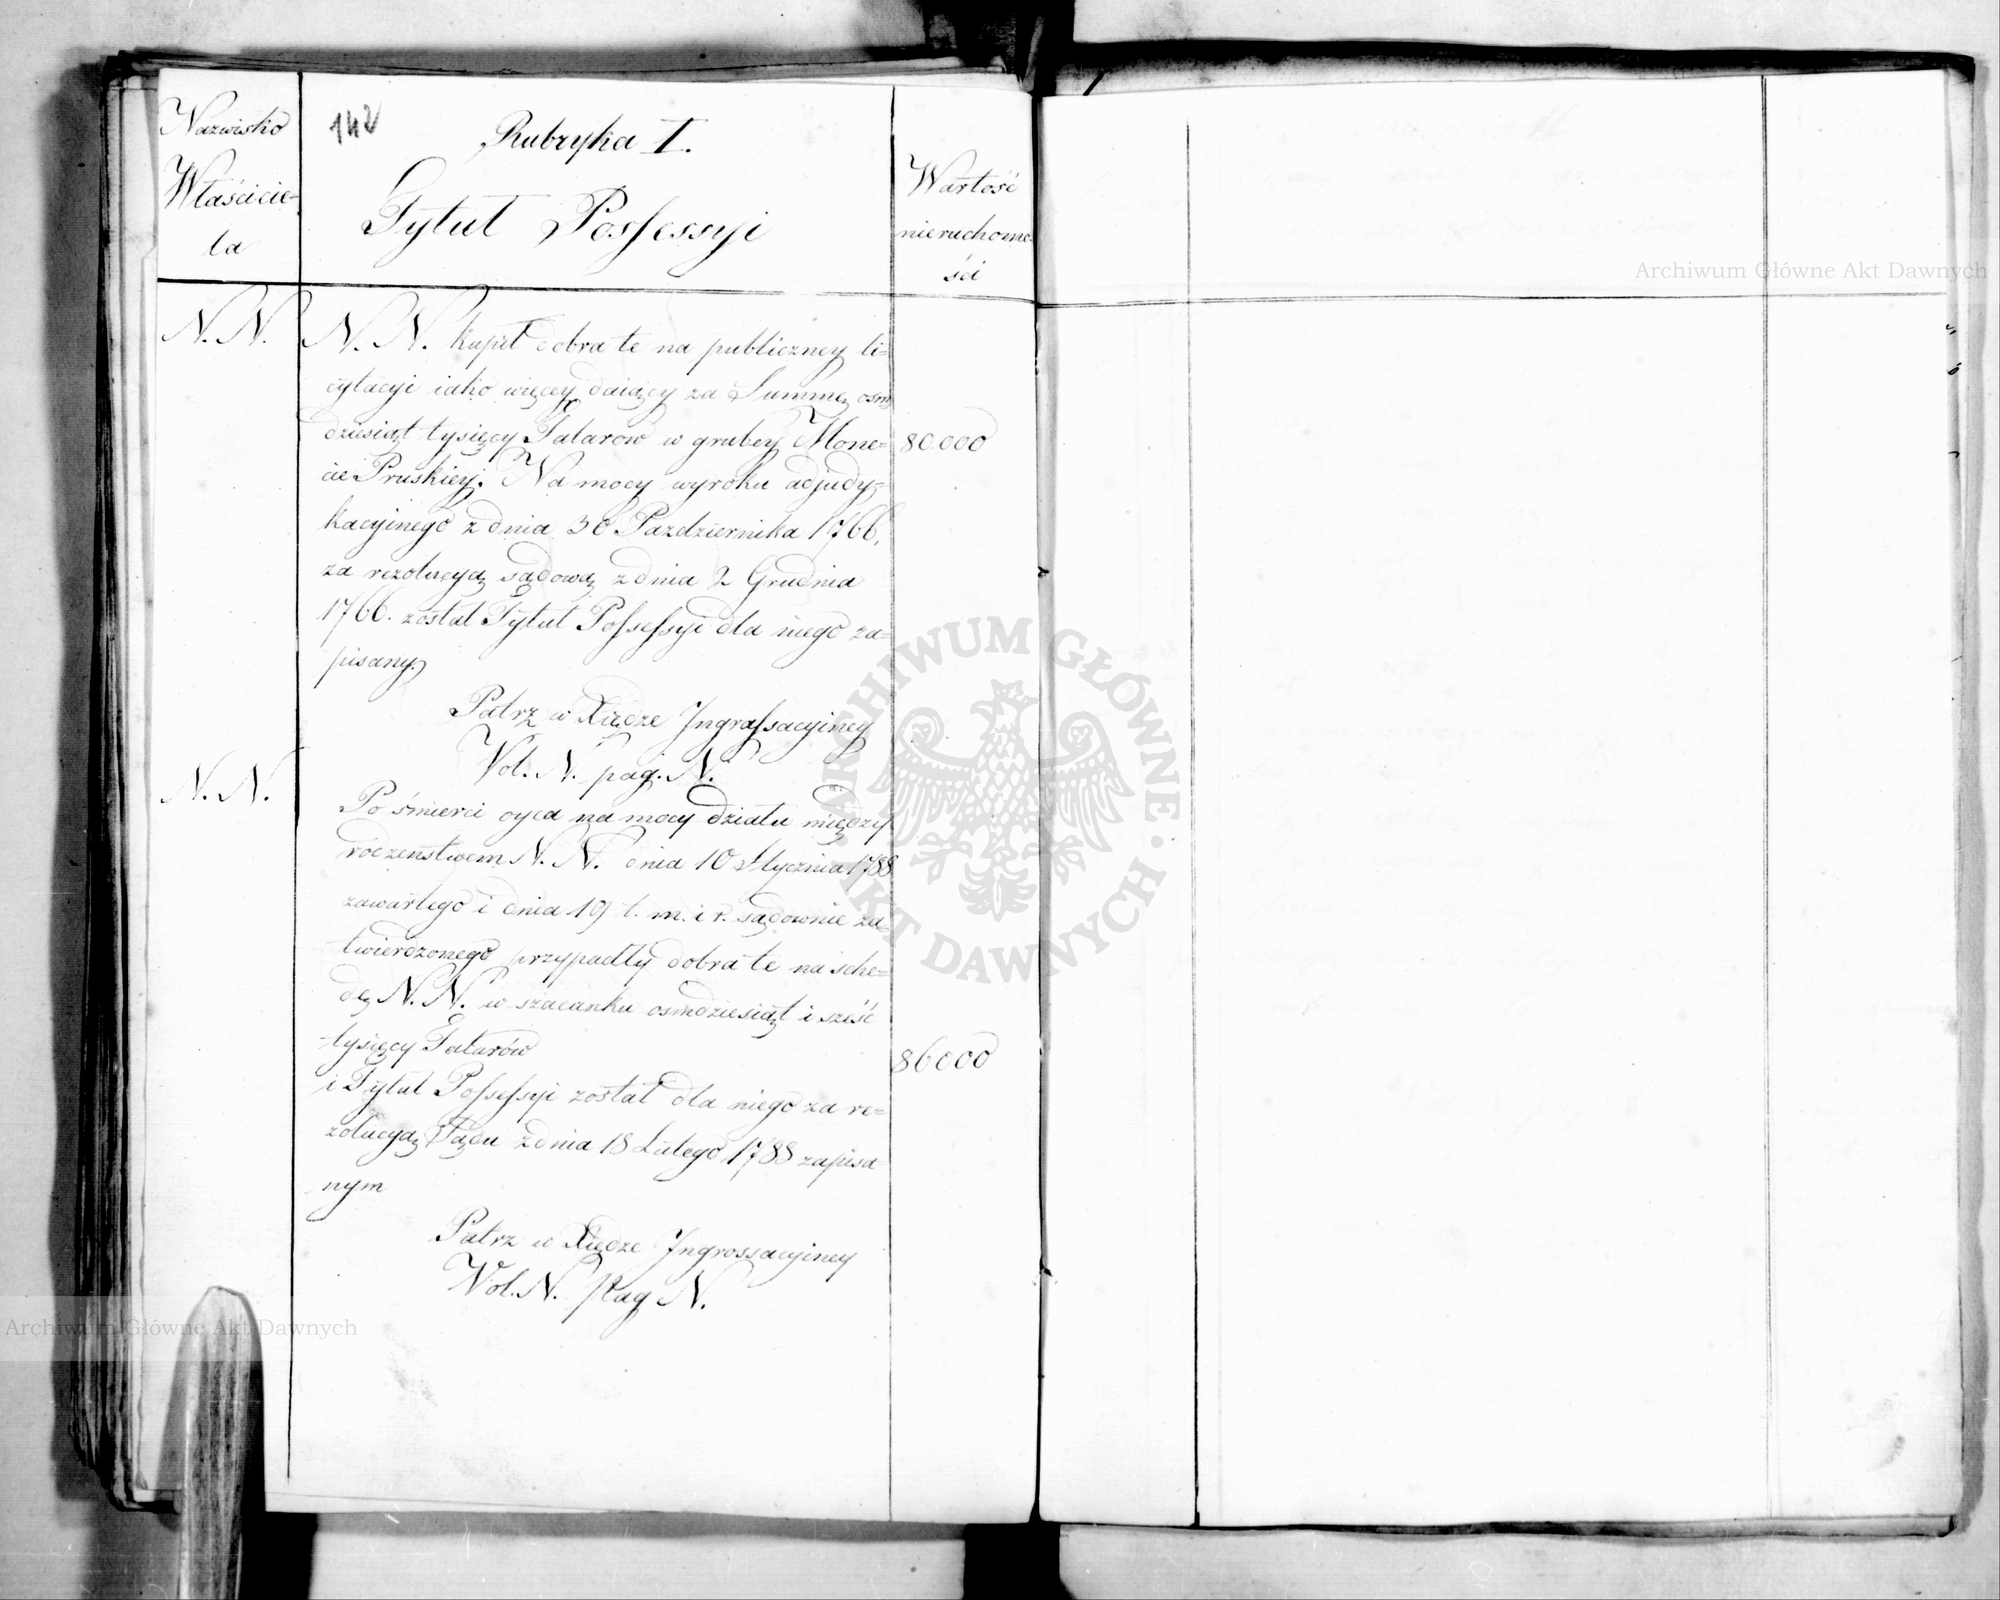 142
Nazwisko
Właścicie-
la
Rubryka I.
Tytuł Possessyi
Wartość
nieruchomo-
ści
N. N.
N. N. kupił dobra te na publiczney li-
cytacyi iako więcey daiący za Summę ośm
dziesiąt tysięcy Talarow w grubey Mone-
cie Pruskiey. Na mocy wyroku adjudy-
kacyinego z dnia 30 Pazdziernika 1766.
za rezolucyą sądową z dnia 2 Grudnia
1766. został Tytuł Possessyi dla niego za-
pisany.
80.000
Patrz w Xiędze Ingrossacyiney
Vol. N. pag. N.
N. N.
Po śmierci oyca na mocy działu między
rodzeństwem N. N. dnia 10 Stycznia 1788
zawartego i dnia 19 t. m. i r. sądownie za-
twierdzonego przypadły dobra te na sche-
dę N. N. w szacunku osmdziesiąt i sześć
tysięcy Talarów
86000
i Tytuł Possessyi został dla niego za re-
zolucyą Sądu z dnia 18 Lutego 1788 zapisa-
nym
Patrz w Xiędze Ingrossacyiney
Vol. N. pag N.
Archiwum Główne Akt Dawnych
Archiwum Główne Akt Dawnych
ARCHIWUM GŁÓWNE · AKT DAWNYCH ·